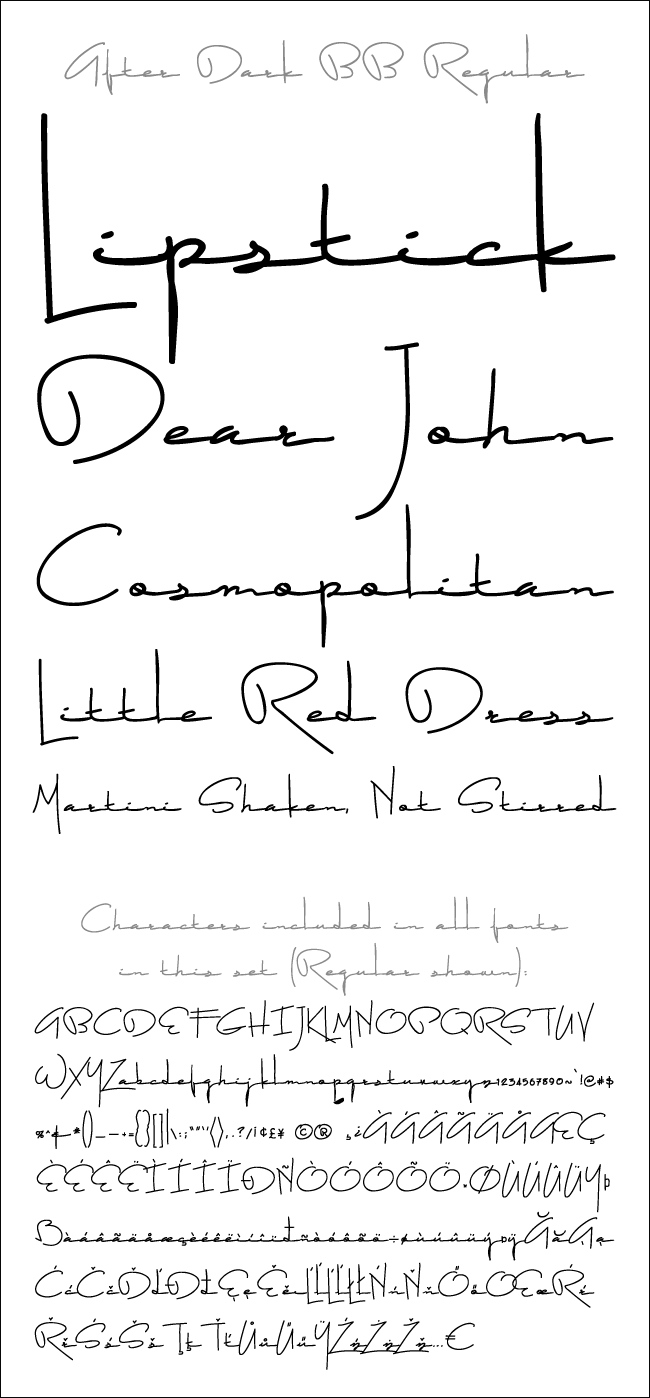 After Dark BB Regular
Lipstick
Dear John
Cosmopolitan
Little Red Dress
Martini Shaken, Not Stirred
Characters included in all fonts
in this set (Regular shown):
ABCDEFGHIJKLMNOPQRSTUV
WXYZabcdefghijklmnopqrstuvwxyz1234567890~`!@#$
%^&*()_-+={}[]|\:;"“”‘’<>,.?/¡¢£¥ ©® ¸¿ÀÁÂÃÄÅÆÇ
ÈÉÊËÌÍÎÏÐÑÒÓÔÕÖ·ØÙÚÛÜÝÞ
ßàáâãäåæçèéêëìíîïðñòóôõö÷øùúûüýþÿĂăĄą
ĆćČčĎďĐđĘęĚěĹĺĽľŁłŃńŇňŐőŒœŔŕ
ŘřŚśŠšŢţŤťŮůŰűŸŹźŻżŽž…€